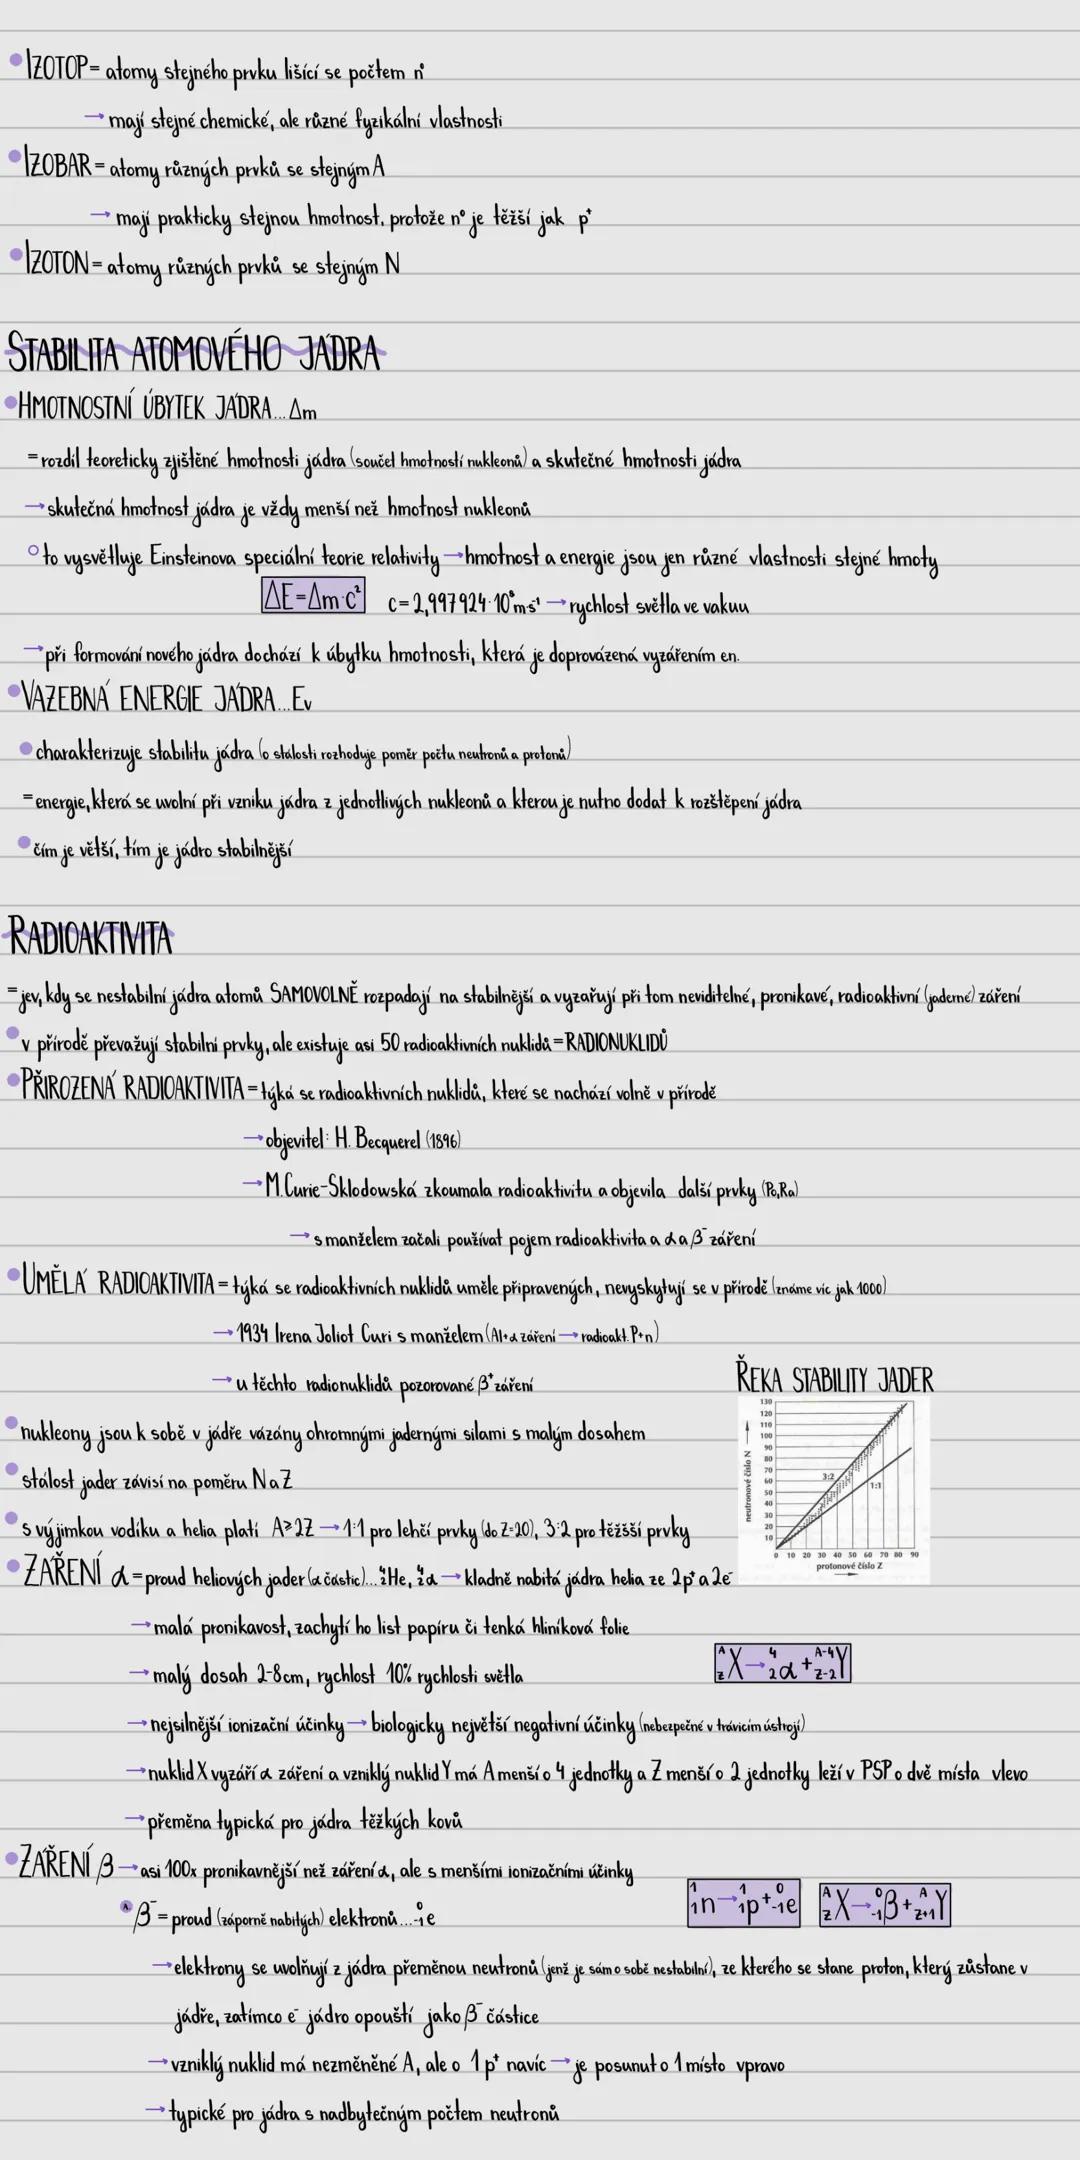 IZOTOP = atomy stejného prvku lišící se počtem n⁰
→ mají stejné chemické, ale různé fyzikální vlastnosti
IZOBAR = atomy různých prvků se stejným A
→ mají prakticky stejnou hmotnost, protože n⁰ je těžší jak p⁺
IZOTON = atomy různých prvků se stejným N
STABILITA ATOMOVÉHO JÁDRA
HMOTNOSTNÍ ÚBYTEK JÁDRA...Δm
= rozdíl teoreticky zjištěné hmotnosti jádra (součet hmotností nukleonů) a skutečné hmotnosti jádra
→ skutečná hmotnost jádra je vždy menší než hmotnost nukleonů
to vysvětluje Einsteinova speciální teorie relativity → hmotnost a energie jsou jen různé vlastnosti stejné hmoty
ΔE = Δm·c² c = 2,997924·10⁸ m·s⁻¹ → rychlost světla ve vakuu
→ při formování nového jádra dochází k úbytku hmotnosti, která je doprovázená vyzářením en.
VAZEBNÁ ENERGIE JÁDRA...Ev
charakterizuje stabilitu jádra (o stálosti rozhoduje poměr počtu neutronů a protonů)
= energie, která se uvolní při vzniku jádra z jednotlivých nukleonů a kterou je nutno dodat k rozštěpení jádra
čím je větší, tím je jádro stabilnější
RADIOAKTIVITA
= jev, kdy se nestabilní jádra atomů SAMOVOLNĚ rozpadají na stabilnější a vyzařují při tom neviditelné, pronikavé, radioaktivní (jaderné) záření
v přírodě převažují stabilní prvky, ale existuje asi 50 radioaktivních nuklidů = RADIONUKLIDŮ
PŘIROZENÁ RADIOAKTIVITA = týká se radioaktivních nuklidů, které se nachází volně v přírodě
→ objevitel: H. Becquerel (1896)
→ M. Curie-Sklodowská zkoumala radioaktivitu a objevila další prvky (Po, Ra)
→ s manželem začali používat pojem radioaktivita a α a β⁻ záření
UMĚLÁ RADIOAKTIVITA = týká se radioaktivních nuklidů uměle připravených, nevyskytují se v přírodě (známe víc jak 1000)
→ 1934 Irena Joliot Curi s manželem (Al+α záření → radioakt. P+n)
→ u těchto radionuklidů pozorované β⁺ záření
ŘEKA STABILITY JADER
neutronové číslo N →
130
120
110
100
90
80
70
60
50
40
30
20
10
3:2
1:1
0 10 20 30 40 50 60 70 80 90
protonové číslo Z
nukleony jsou k sobě v jádře vázány ohromnými jadernými silami s malým dosahem
stálost jader závisí na poměru N a Z
s výjimkou vodíku a helia platí A≥2Z → 1:1 pro lehčí prvky (do Z=20), 3:2 pro těžšší prvky
ZÁŘENÍ α = proud heliových jader (α částic)... ⁴₂He, ⁴₂α → kladně nabitá jádra helia ze 2p⁺ a 2e⁻
→ malá pronikavost, zachytí ho list papíru či tenká hliníková folie
→ malý dosah 2-8cm, rychlost 10% rychlosti světla
ᴬ_Z X → ⁴₂α + ᴬ⁻⁴_Z-2 Y
→ nejsilnější ionizační účinky → biologicky největší negativní účinky (nebezpečné v trávicím ústrojí)
→ nuklid X vyzáří α záření a vzniklý nuklid Y má A menší o 4 jednotky a Z menší o 2 jednotky leží v PSP o dvě místa vlevo
→ přeměna typická pro jádra těžkých kovů
ZÁŘENÍ β → asi 100x pronikavnější než záření α, ale s menšími ionizačními účinky
A β⁻ = proud (záporně nabitých) elektronů... ⁰₋₁e
¹₁n → ¹₁p + ⁰₋₁e
ᴬ_Z X → ⁰₋₁β + ᴬ_Z+1 Y
→ elektrony se uvolňují z jádra přeměnou neutronů (jenž je sám o sobě nestabilní), ze kterého se stane proton, který zůstane v
jádře, zatímco e⁻ jádro opouští jako β⁻ částice
→ vzniklý nuklid má nezměněné A, ale o 1 p⁺ navíc → je posunut o 1 místo vpravo
→ typické pro jádra s nadbytečným počtem neutronů